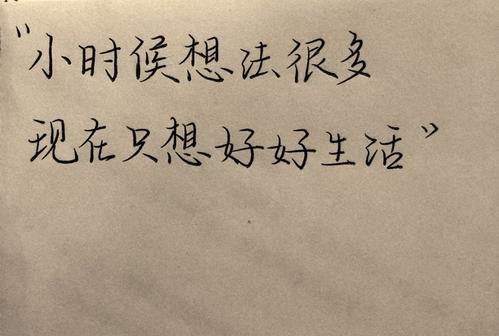 “小时候想法很多
现在只想好好生活”